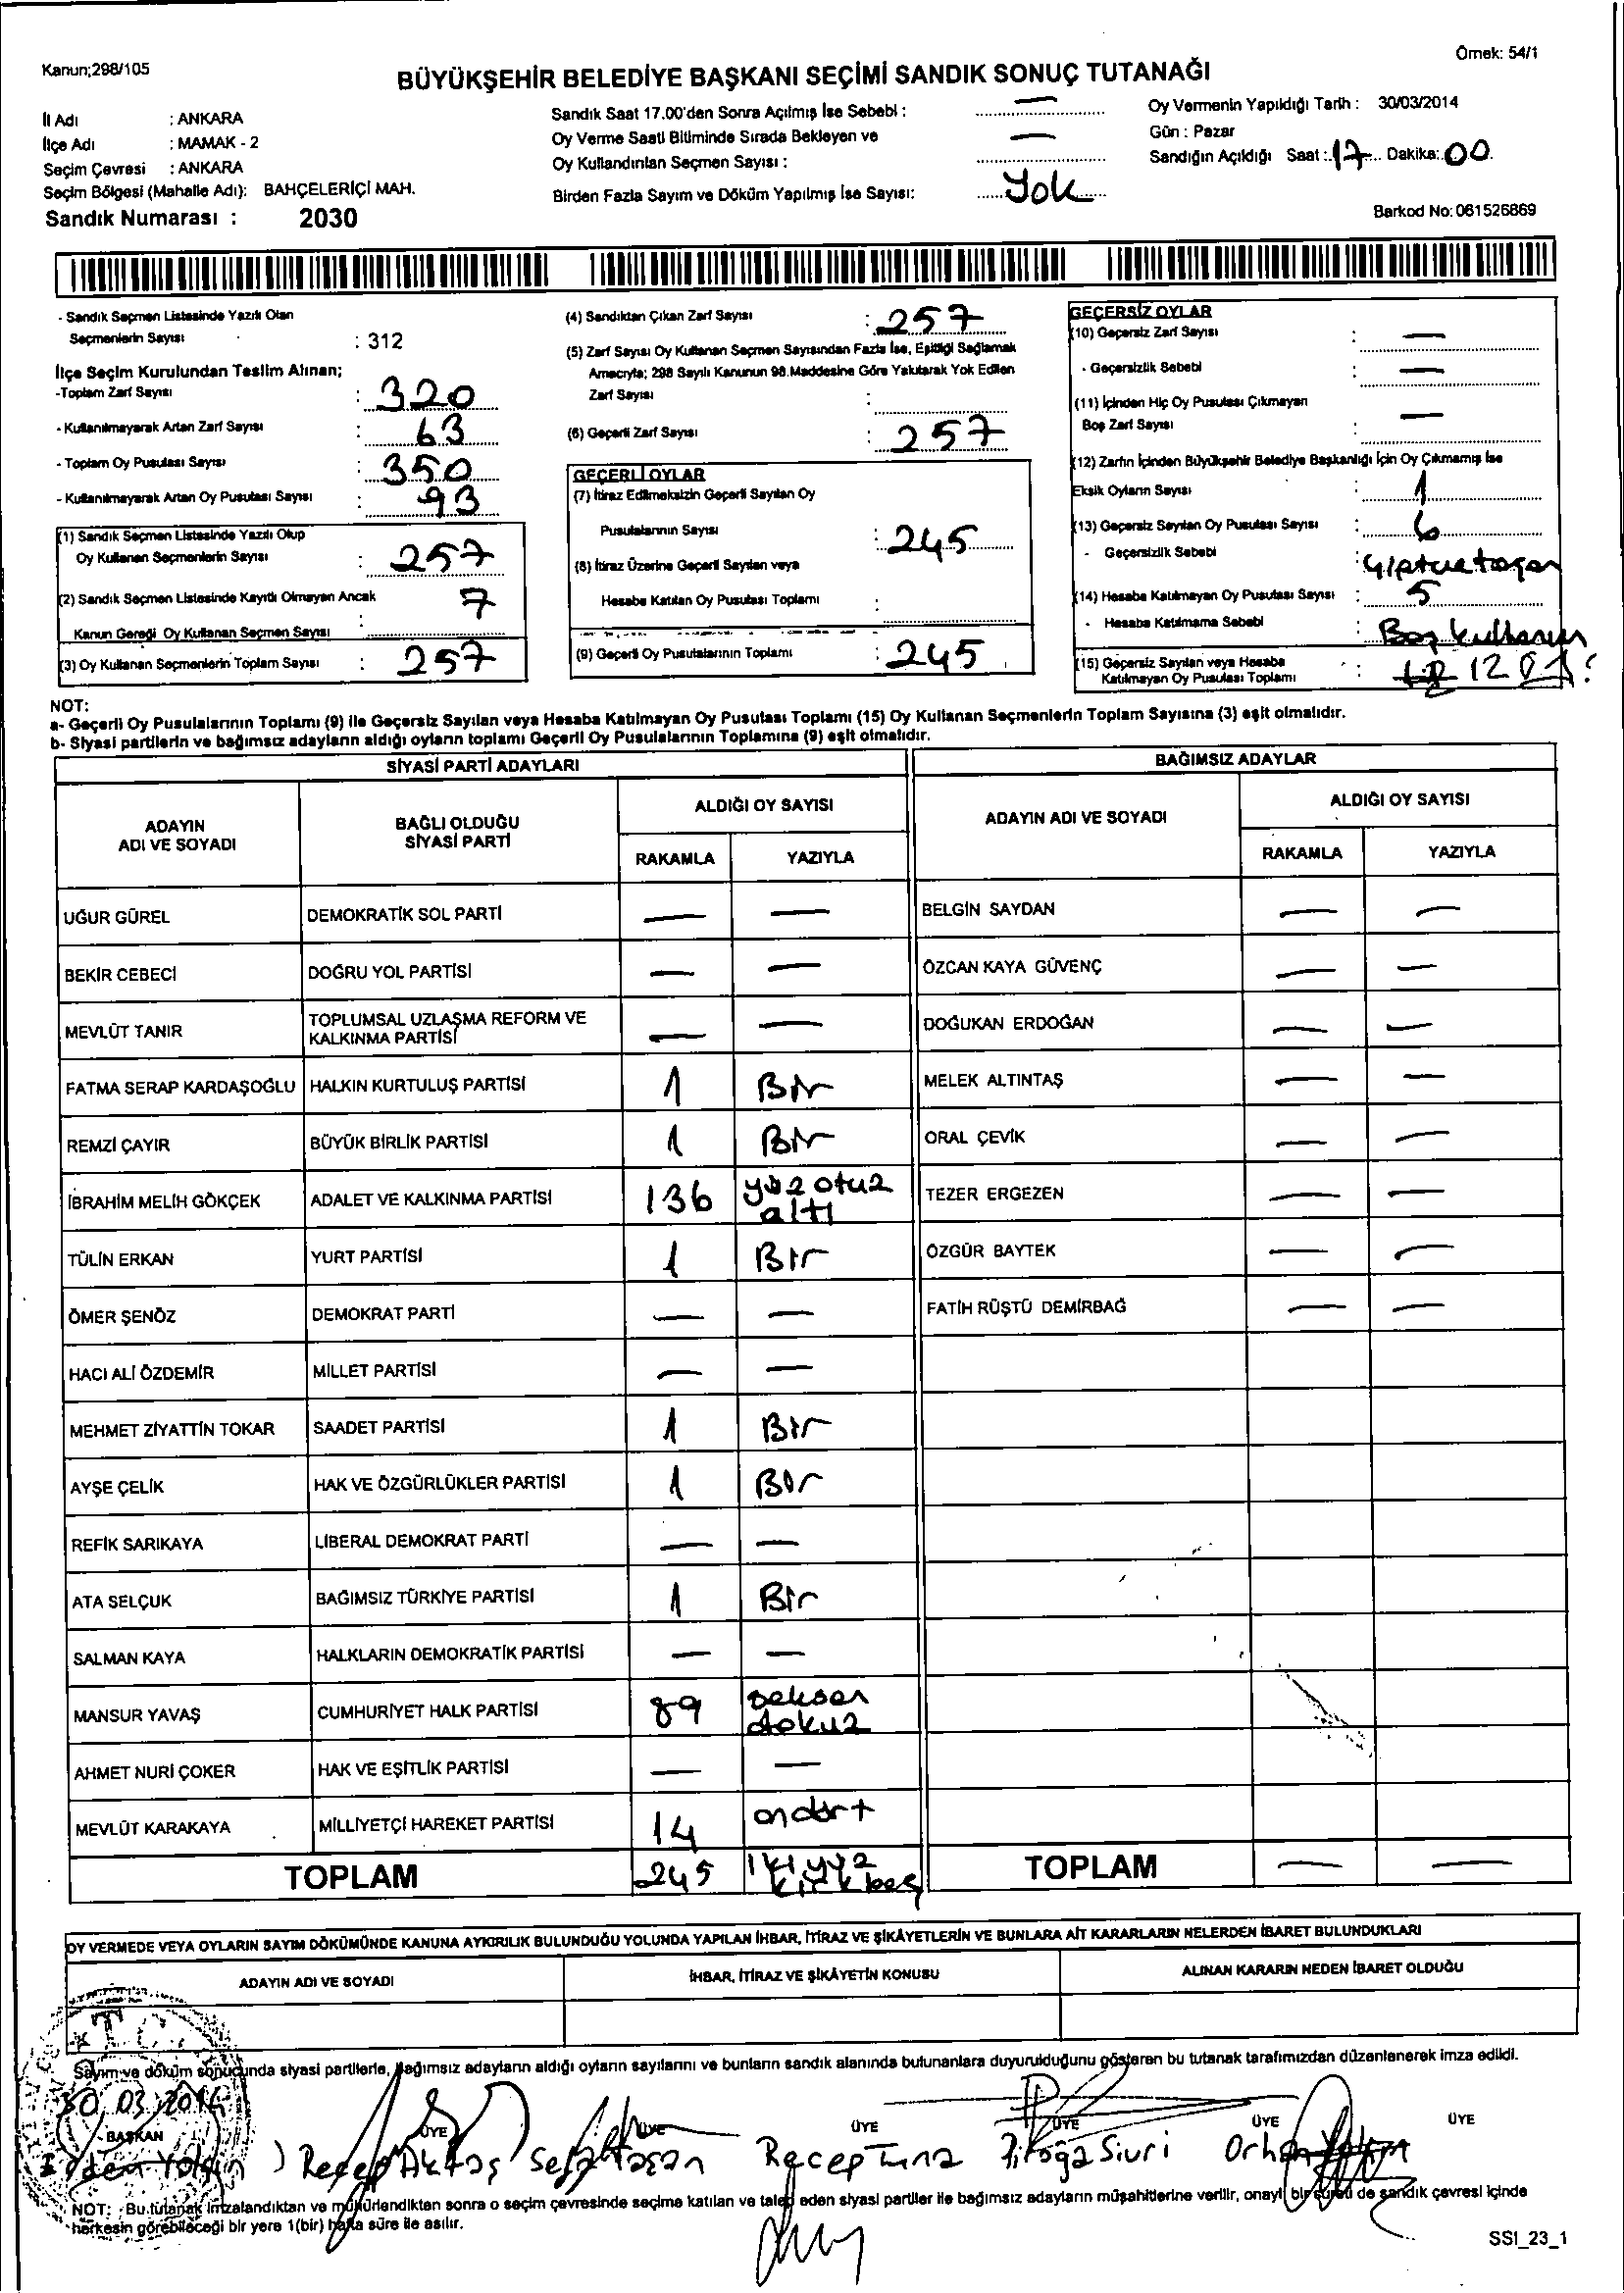 Kanun;298/105
Örnek: 54/1
BÜYÜKŞEHİR BELEDİYE BAŞKANI SEÇİMİ SANDIK SONUÇ TUTANAĞI
İl Adı : ANKARA
İlçe Adı : MAMAK - 2
Seçim Çevresi : ANKARA
Seçim Bölgesi (Mahalle Adı): BAHÇELERİÇİ MAH.
Sandık Numarası : 2030
Sandık Saat 17.00'den Sonra Açılmış İse Sebebi : —
Oy Verme Saati Bitiminde Sırada Bekleyen ve
Oy Kullandırılan Seçmen Sayısı : —
Birden Fazla Sayım ve Döküm Yapılmış İse Sayısı: Yok
Oy Vermenin Yapıldığı Tarih : 30/03/2014
Gün : Pazar
Sandığın Açıldığı Saat : 17 Dakika: 00
Barkod No: 061526869
- Sandık Seçmen Listesinde Yazılı Olan
Seçmenlerin Sayısı : 312
İlçe Seçim Kurulundan Teslim Alınan;
-Toplam Zarf Sayısı : 320
- Kullanılmayarak Artan Zarf Sayısı : 63
- Toplam Oy Pusulası Sayısı : 350
- Kullanılmayarak Artan Oy Pusulası Sayısı : 93
(1) Sandık Seçmen Listesinde Yazılı Olup
Oy Kullanan Seçmenlerin Sayısı : 257
(2) Sandık Seçmen Listesinde Kayıtlı Olmayan Ancak
Kanun Gereği Oy Kullanan Seçmen Sayısı : 7
(3) Oy Kullanan Seçmenlerin Toplam Sayısı : 257
(4) Sandıktan Çıkan Zarf Sayısı : 257
(5) Zarf Sayısı Oy Kullanan Seçmen Sayısından Fazla İse, Eşitliği Sağlamak
Amacıyla; 298 Sayılı Kanunun 98.Maddesine Göre Yakılarak Yok Edilen
Zarf Sayısı :
(6) Geçerli Zarf Sayısı : 257
GEÇERLİ OYLAR
(7) İtiraz Edilmeksizin Geçerli Sayılan Oy
Pusulalarının Sayısı : 245
(8) İtiraz Üzerine Geçerli Sayılan veya
Hesaba Katılan Oy Pusulası Toplamı :
(9) Geçerli Oy Pusulalarının Toplamı : 245
GEÇERSİZ OYLAR
(10) Geçersiz Zarf Sayısı : —
- Geçersizlik Sebebi : —
(11) İçinden Hiç Oy Pusulası Çıkmayan
Boş Zarf Sayısı : —
(12) Zarfın İçinden Büyükşehir Belediye Başkanlığı İçin Oy Çıkmamış İse
Eksik Oyların Sayısı : 1
(13) Geçersiz Sayılan Oy Pusulası Sayısı : 6
- Geçersizlik Sebebi :
(14) Hesaba Katılmayan Oy Pusulası Sayısı : 5
- Hesaba Katılmama Sebebi : Boş
(15) Geçersiz Sayılan veya Hesaba
Katılmayan Oy Pusulası Toplamı : 12
NOT:
a- Geçerli Oy Pusulalarının Toplamı (9) ile Geçersiz Sayılan veya Hesaba Katılmayan Oy Pusulası Toplamı (15) Oy Kullanan Seçmenlerin Toplam Sayısına (3) eşit olmalıdır.
b- Siyasi partilerin ve bağımsız adayların aldığı oyların toplamı Geçerli Oy Pusulalarının Toplamına (9) eşit olmalıdır.
SİYASİ PARTİ ADAYLARI
BAĞIMSIZ ADAYLAR
ADAYIN ADI VE SOYADI BAĞLI OLDUĞU SİYASİ PARTİ ALDIĞI OY SAYISI RAKAMLA YAZIYLA
ADAYIN ADI VE SOYADI ALDIĞI OY SAYISI RAKAMLA YAZIYLA
UĞUR GÜREL DEMOKRATİK SOL PARTİ — — BELGİN SAYDAN — —
BEKİR CEBECİ DOĞRU YOL PARTİSİ — — ÖZCAN KAYA GÜVENÇ — —
MEVLÜT TANIR TOPLUMSAL UZLAŞMA REFORM VE KALKINMA PARTİSİ — — DOĞUKAN ERDOĞAN — —
FATMA SERAP KARDAŞOĞLU HALKIN KURTULUŞ PARTİSİ 1 Bir MELEK ALTINTAŞ — —
REMZİ ÇAYIR BÜYÜK BİRLİK PARTİSİ 1 Bir ORAL ÇEVİK — —
İBRAHİM MELİH GÖKÇEK ADALET VE KALKINMA PARTİSİ 136 yüz otuz altı TEZER ERGEZEN — —
TÜLİN ERKAN YURT PARTİSİ 1 Bir ÖZGÜR BAYTEK — —
ÖMER ŞENÖZ DEMOKRAT PARTİ — — FATİH RÜŞTÜ DEMİRBAĞ — —
HACI ALİ ÖZDEMİR MİLLET PARTİSİ — —
MEHMET ZİYATTİN TOKAR SAADET PARTİSİ 1 Bir
AYŞE ÇELİK HAK VE ÖZGÜRLÜKLER PARTİSİ 1 Bir
REFİK SARIKAYA LİBERAL DEMOKRAT PARTİ — —
ATA SELÇUK BAĞIMSIZ TÜRKİYE PARTİSİ 1 Bir
SALMAN KAYA HALKLARIN DEMOKRATİK PARTİSİ — —
MANSUR YAVAŞ CUMHURİYET HALK PARTİSİ 89 seksen dokuz
AHMET NURİ ÇOKER HAK VE EŞİTLİK PARTİSİ — —
MEVLÜT KARAKAYA MİLLİYETÇİ HAREKET PARTİSİ 14 ondört
TOPLAM 245 ikiyüz kırkbeş TOPLAM — —
OY VERMEDE VEYA OYLARIN SAYIM DÖKÜMÜNDE KANUNA AYKIRILIK BULUNDUĞU YOLUNDA YAPILAN İHBAR, İTİRAZ VE ŞİKÂYETLERİN VE BUNLARA AİT KARARLARIN NELERDEN İBARET BULUNDUKLARI
ADAYIN ADI VE SOYADI İHBAR, İTİRAZ VE ŞİKÂYETİN KONUSU ALINAN KARARIN NEDEN İBARET OLDUĞU
T.C.
Sayım ve döküm sonucunda siyasi partilerle, bağımsız adayların aldığı oyların sayılarını ve bunların sandık alanında bulunanlara duyurulduğunu gösteren bu tutanak tarafımızdan düzenlenerek imza edildi.
30.03.2014
BAŞKAN ÜYE ÜYE ÜYE ÜYE ÜYE ÜYE
Recep Aktaş Recep Tuna Orhan
NOT: Bu tutanak imzalandıktan ve mühürlendikten sonra o seçim çevresinde seçime katılan ve talep eden siyasi partiler ile bağımsız adayların müşahitlerine verilir, onaylı bir sureti de sandık çevresi içinde
herkesin görebileceği bir yere 1(bir) hafta süre ile asılır.
SSI_23_1